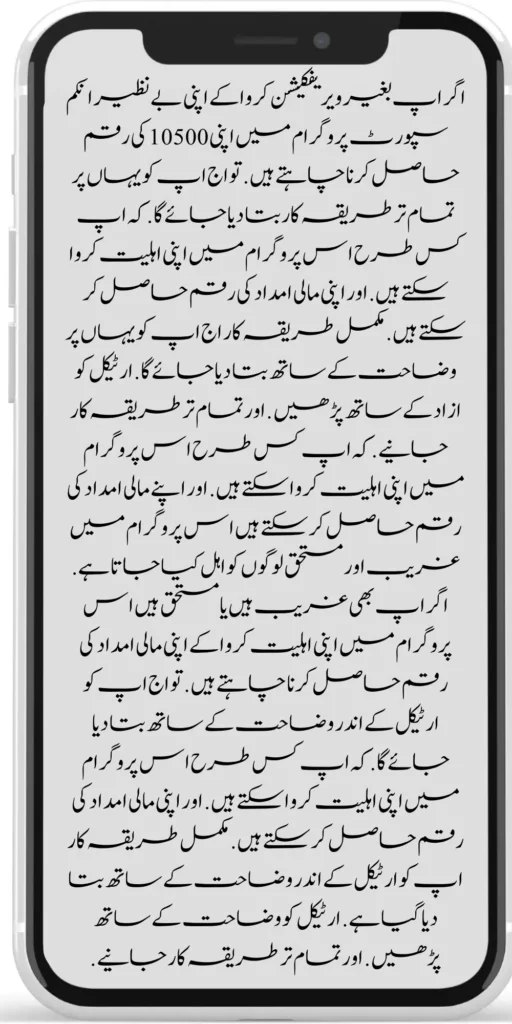 اگر اپ بغیر ویریفکیشن کروا کے اپنی بے نظیر انکم
سپورٹ پروگرام میں اپنی 10500 کی رقم
حاصل کرنا چاہتے ہیں. تو اج اپ کو یہاں پر
تمام تر طریقہ کار بتا دیا جائے گا. کہ اپ
کس طرح اس پروگرام میں اپنی اہلیت کروا
سکتے ہیں. اور اپنی مالی امداد کی رقم حاصل کر
سکتے ہیں. مکمل طریقہ کار اج اپ کو یہاں پر
وضاحت کے ساتھ بتا دیا جائے گا. ارٹیکل کو
ازاد کے ساتھ پڑھیں. اور تمام تر طریقہ کار
جانیے. کہ اپ کس طرح اس پروگرام
میں اپنی اہلیت کروا سکتے ہیں. اور اپنے مالی امداد کی
رقم حاصل کر سکتے ہیں اس پروگرام میں
غریب اور مستحق لوگوں کو اہل کیا جاتا ہے.
اگر اپ بھی غریب ہیں یا مستحق ہیں اس
پروگرام میں اپنی اہلیت کروا کے اپنی مالی امداد کی
رقم حاصل کرنا چاہتے ہیں. تو اج اپ کو
ارٹیکل کے اندر وضاحت کے ساتھ بتا دیا
جائے گا. کہ اپ کس طرح اس پروگرام
میں اپنی اہلیت کروا سکتے ہیں. اور اپنی مالی امداد کی
رقم حاصل کر سکتے ہیں. مکمل طریقہ کار
اپ کو ارٹیکل کے اندر وضاحت کے ساتھ بتا
دیا گیا ہے. ارٹیکل کو وضاحت کے ساتھ
پڑھیں. اور تمام تر طریقہ کار جانیے.